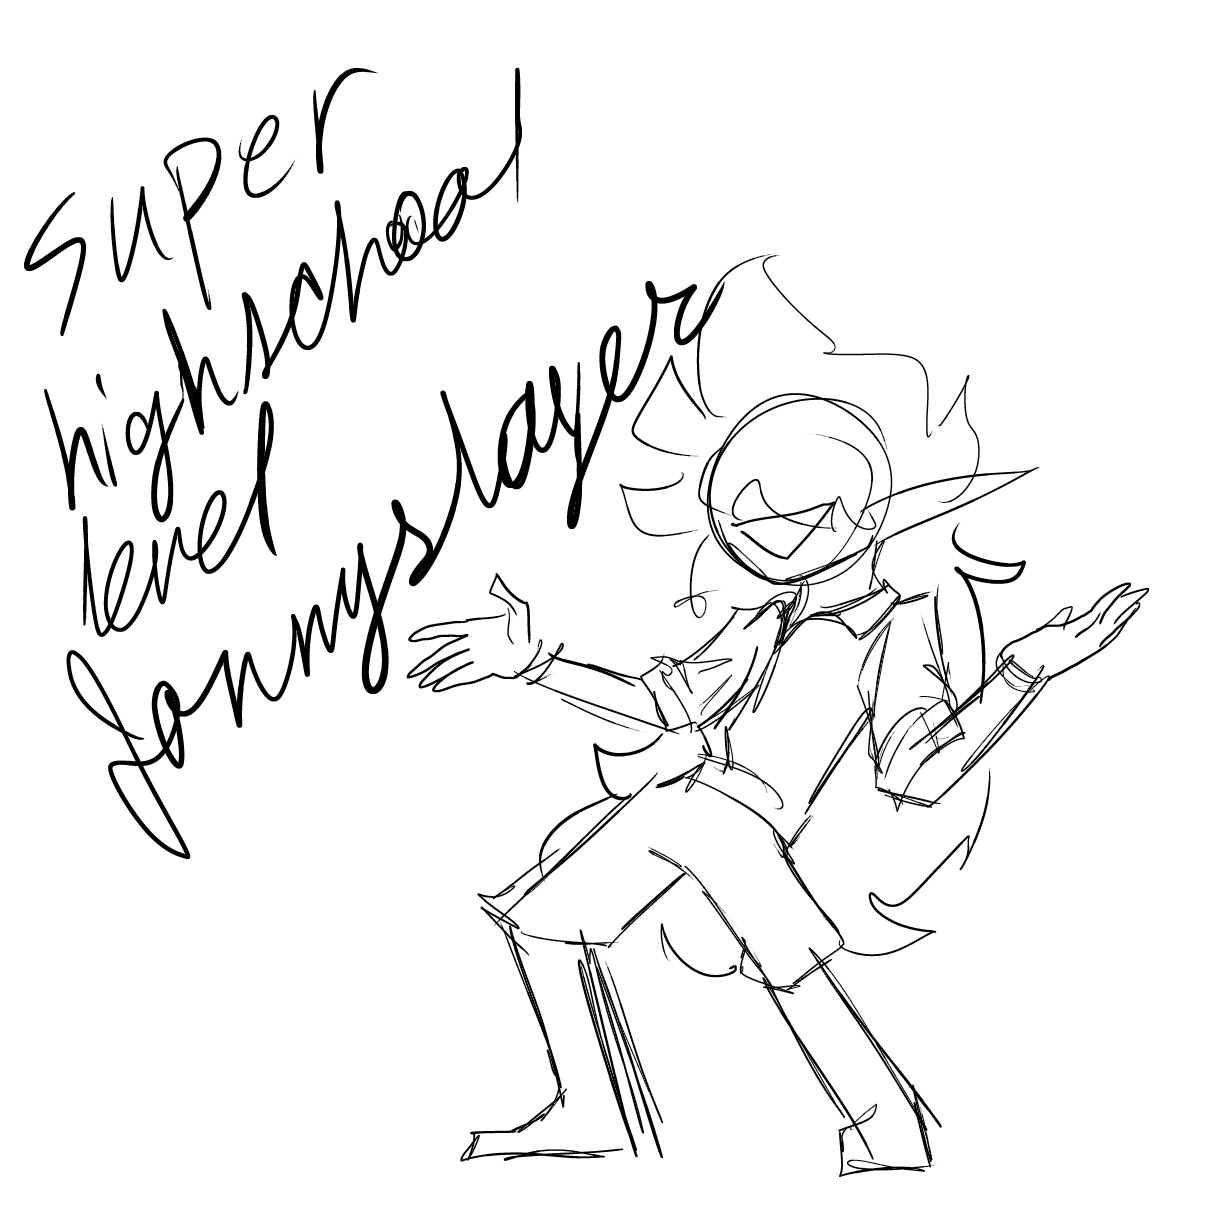 super
highschool
level
Jonnyslayer